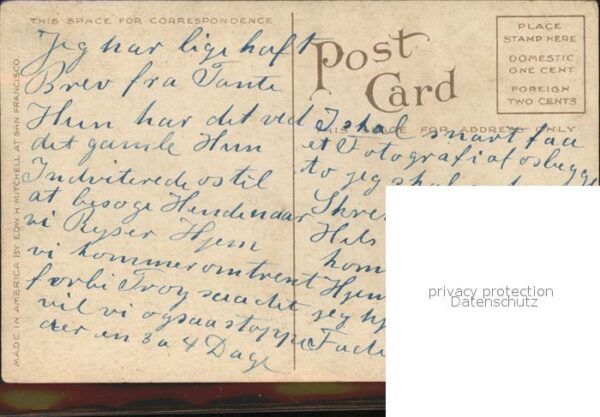 THIS SPACE FOR CORRESPONDENCE
Jeg har lige haft
Brev fra Tante
Hun har det ved
det gamle Hun
Indviterede os til
at besøge Hende naar
vi Rejser Hjem
vi kommer omtrent
forbi Troy saa det
vil vi ogsaa stoppe
der en 3 a 4 Dage
Post
Card
THIS SPACE FOR ADDRESS ONLY
I skal snart faa
et Fotografi af os begge
to jeg skal
Hils
Hjem
jeg
PLACE
STAMP HERE
DOMESTIC
ONE CENT
FOREIGN
TWO CENTS
MADE IN AMERICA BY EDW H MITCHELL AT SAN FRANCISCO.
privacy protection
Datenschutz